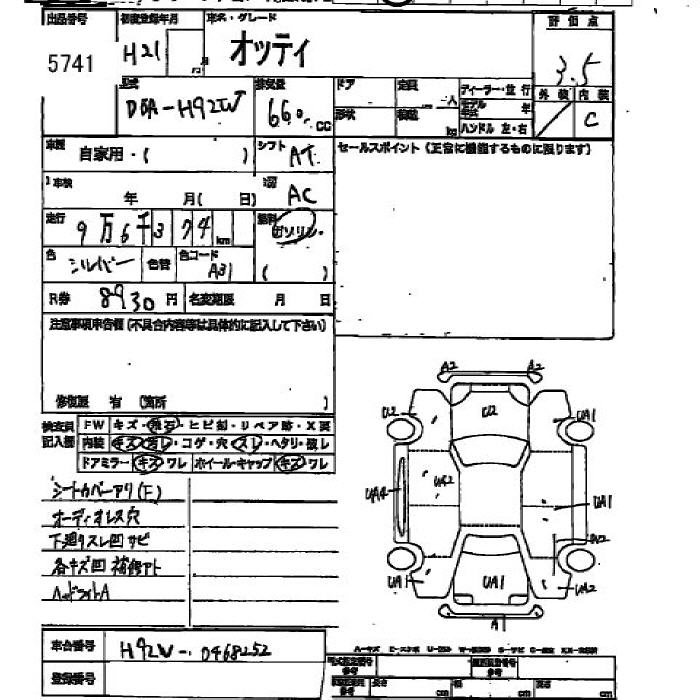 出品番号 初度登録年月 車名・グレード 評価点
5741 H21 月 オッティ 3.5
型式 排気量 ドア 定員 人 ディーラー・並行 外装 内装
DBA-H92W 660 cc 形状 積載 kg モデル年式 年 C
ハンドル 左・右
車歴 自家用・( ) シフト AT セールスポイント (正常に機能するものに限ります)
車検 年 月( 日) AC
走行 9万6千3 74 km 燃料 ガソリン
色 シルバー 色替 色コード A31 ( )
R券 8930円 名変期限 月 日
注意事項申告欄 (不具合内容等は具体的に記入して下さい)
修復歴 有 (箇所 )
検査員記入欄 FW キズ・飛石・ヒビ割・リペア跡・X要
内装 キズ・汚レ・コゲ・穴・スレ・ヘタリ・破レ
ドアミラー キズ ワレ ホイール・キャップ キズ ワレ
シートカバーアリ(F)
オーディオレス穴
下廻りスレ凹サビ
各キズ凹補修アト
ヘッドライトA
A2 A2
U2 U2 UA1
UA4 UA2 UA1
UA1 UA1 UA2
A1
車台番号 H92W-0468252
登録番号
長さ cm 幅 cm 高さ cm